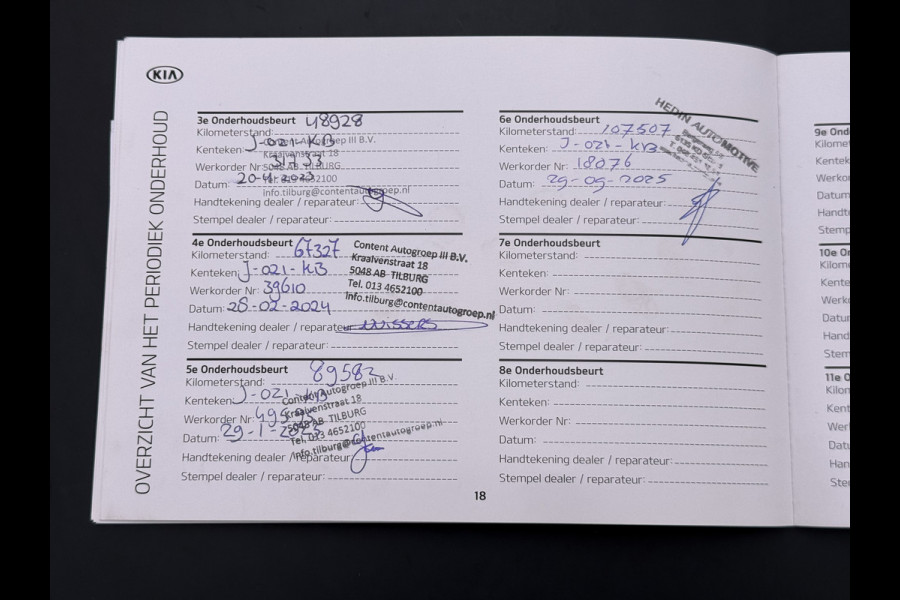 KIA
OVERZICHT VAN HET PERIODIEK ONDERHOUD
3e Onderhoudsbeurt 48928
Kilometerstand:
Kenteken: J-021-KB
Werkorder Nr:
Datum: 20-4-2023
Handtekening dealer / reparateur:
Stempel dealer / reparateur:
Content Autogroep III B.V.
Kraalvenstraat 18
5048 AB TILBURG
Tel. 013 4652100
info.tilburg@contentautogroep.nl
4e Onderhoudsbeurt
Kilometerstand: 67327
Kenteken: J-021-KB
Werkorder Nr: 39610
Datum: 28-02-2024
Handtekening dealer / reparateur
Stempel dealer / reparateur:
Content Autogroep III B.V.
Kraalvenstraat 18
5048 AB TILBURG
Tel. 013 4652100
info.tilburg@contentautogroep.nl
5e Onderhoudsbeurt
Kilometerstand: 89582
Kenteken: J-021-KB
Werkorder Nr:
Datum: 29-1-2025
Handtekening dealer / reparateur:
Stempel dealer / reparateur:
Content Autogroep III B.V.
Kraalvenstraat 18
5048 AB TILBURG
Tel. 013 4652100
info.tilburg@contentautogroep.nl
6e Onderhoudsbeurt
Kilometerstand: 107507
Kenteken: J-021-KB
Werkorder Nr: 18076
Datum: 29-09-2025
Handtekening dealer / reparateur:
Stempel dealer / reparateur:
HEDIN AUTOMOTIVE
7e Onderhoudsbeurt
Kilometerstand:
Kenteken:
Werkorder Nr:
Datum:
Handtekening dealer / reparateur:
Stempel dealer / reparateur:
8e Onderhoudsbeurt
Kilometerstand:
Kenteken:
Werkorder Nr:
Datum:
Handtekening dealer / reparateur:
Stempel dealer / reparateur:
18
9e Ond
Kilome
Kentek
Werko
Datum
Handt
Stemp
10e O
Kilom
Kente
Werk
Datu
Hand
Stem
11e O
Kilo
Kent
Wer
Datu
Han
Ste